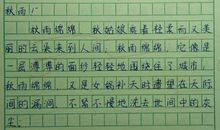 秋雨！
秋雨绵绵，秋姑娘乘着轻柔而又美
丽的云朵来到人间，秋雨绵绵，它像是
一层薄薄的面纱轻轻地围绕住了城市，
秋雨绵绵，又是女娲补天时遗望在天际
间的漏洞，不紧不慢地洗去世间中的灰
尘。